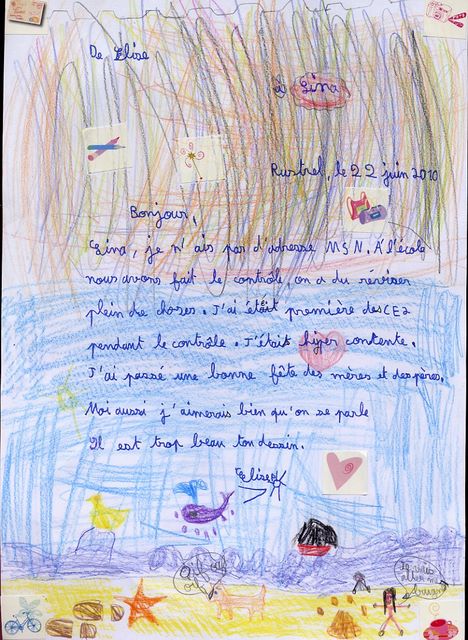 De Elise
à Lina
Rustrel, le 22 juin 2010
Bonjour,
Lina, je n'ais pas d'adresse MSN. A l'école
nous avons fait le contrôle, on a du réviser
plein de choses. J'ai étéit première des CE2
pendant le contrôle. J'étais hyper contente.
J'ai passé une bonne fête des mères et des pères.
Moi aussi j'aimerais bien qu'on se parle
Il est trop beau ton dessin.
Elise